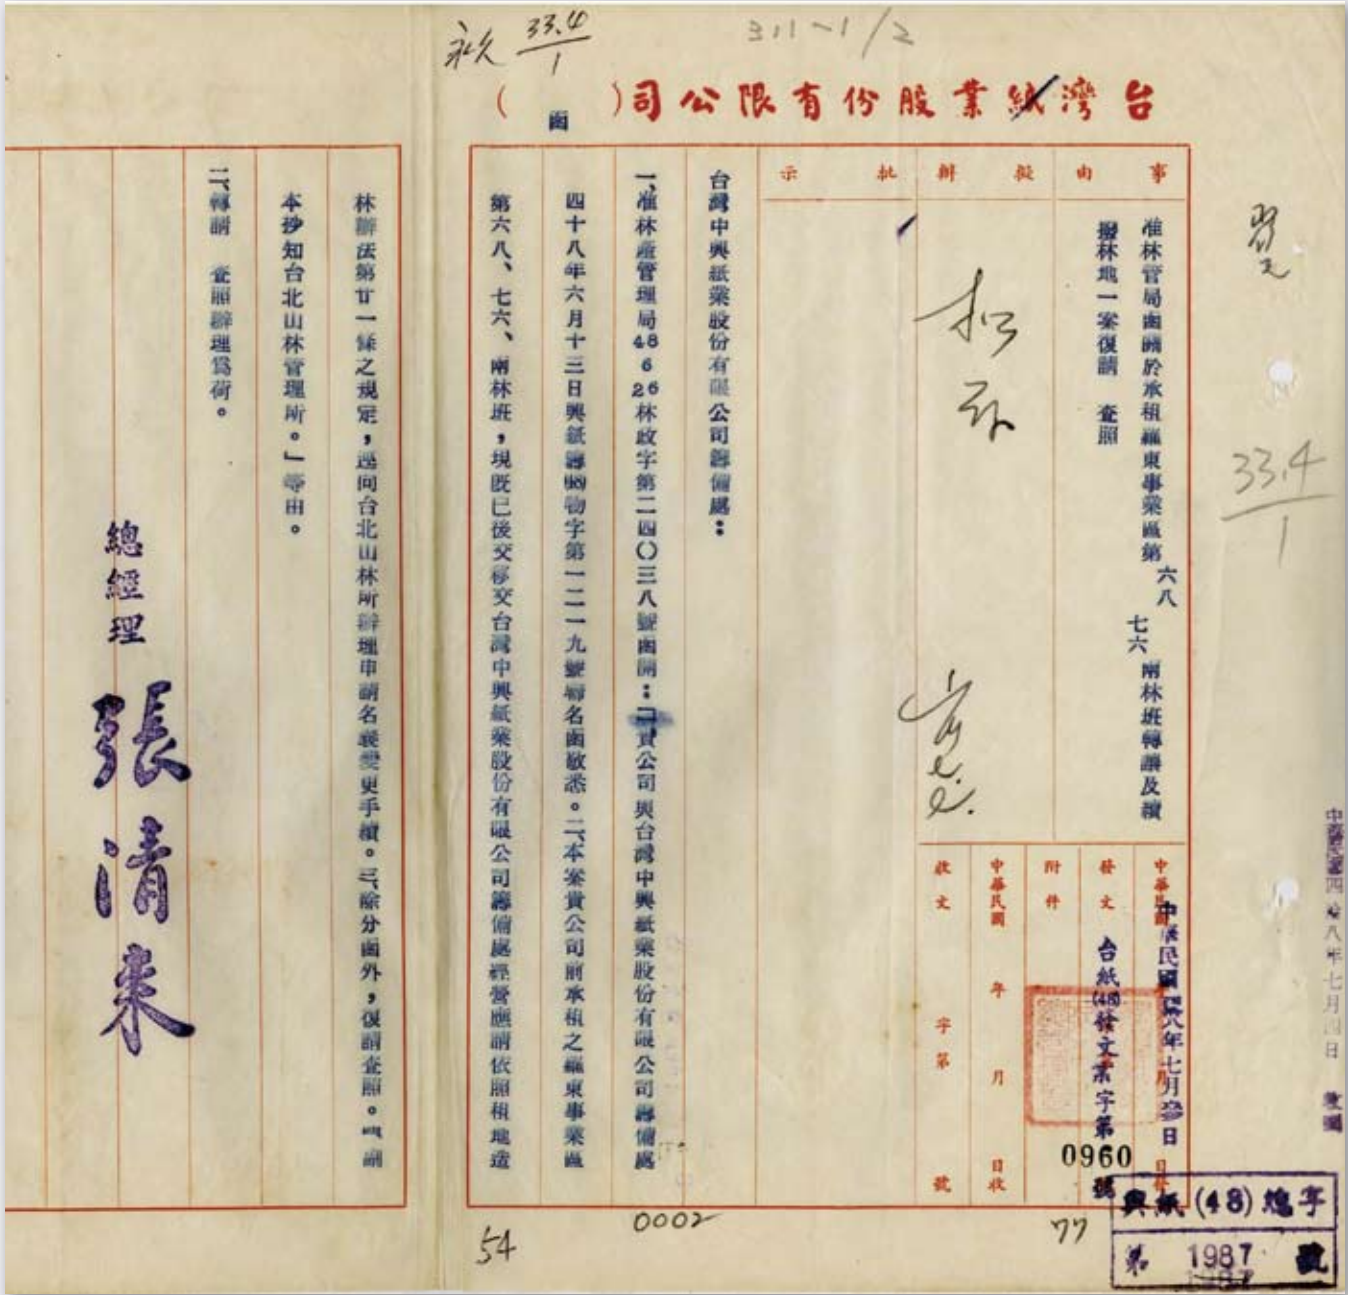 永久 33.4/1
311-1/2
台灣紙業股份有限公司(函)
事由
准林管局函關於承租羅東事業區第六八七六兩林班轉讓及續
撥林地一案復請 查照
擬辦
批示
中華民國四八年七月 日發
發文 台紙(48)發文業字第0960號
附件
中華民國 年 月 日收
收文 字第 號
台灣中興紙業股份有限公司籌備處：
一、准林產管理局48 6 26林政字第二四〇三八號函開：「一、貴公司與台灣中興紙業股份有限公司籌備處
四十八年六月十三日興紙籌(48)物字第一二一九號聯名函敬悉。二、本案貴公司前承租之羅東事業區
第六八、七六、兩林班，現既已後交移交台灣中興紙業股份有限公司籌備處經營應請依照租地造
林辦法第廿一條之規定，逕向台北山林所辦理申請名義變更手續。三、除分函外，復請查照。四、副
本抄知台北山林管理所。」等由。
二、轉請 查照辦理為荷。
總經理 張清來
33.4/1
中華民國四拾八年七月四日 收到
興紙(48)總字
第 1987 號
77
0002
54